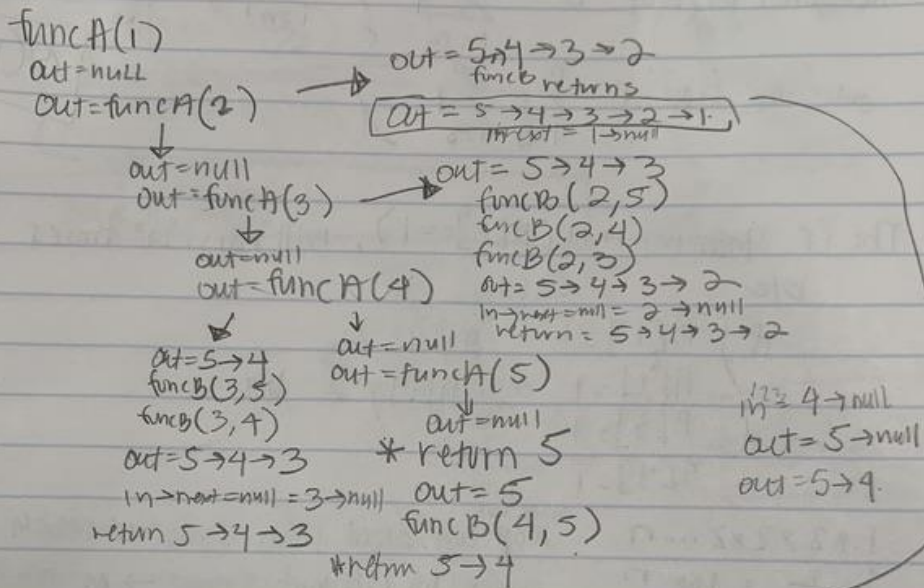 funcA(1)
out=null
out=funcA(2)
out=null
out=funcA(3)
out=null
out=funcA(4)
out=5→4
funcB(3,5)
funcB(3,4)
out=5→4→3
in→next=null=3→null
return 5→4→3
out=null
out=funcA(5)
out=null
* return 5
out=5
funcB(4,5)
*return 5→4
out=5→4→3→2
funcB returns
out = 5→4→3→2→1
in→next = 1→null
out= 5→4→3
funcB(2,5)
funcB(2,4)
funcB(2,3)
out= 5→4→3→2
in→next=null= 2→null
return= 5→4→3→2
in= 4→null
out= 5→null
out= 5→4.